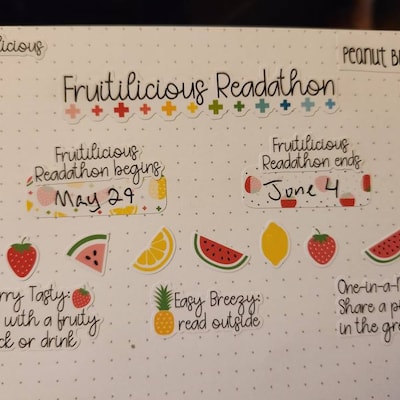 licious
Peanut B
Fruitilicious Readathon
Fruitilicious
Readathon begins
May 29
Fruitilicious
Readathon ends
June 4
rry Tasty:
with a fruity
ck or drink
Easy Breezy:
read outside
One-in-a-
Share a p
in the gr